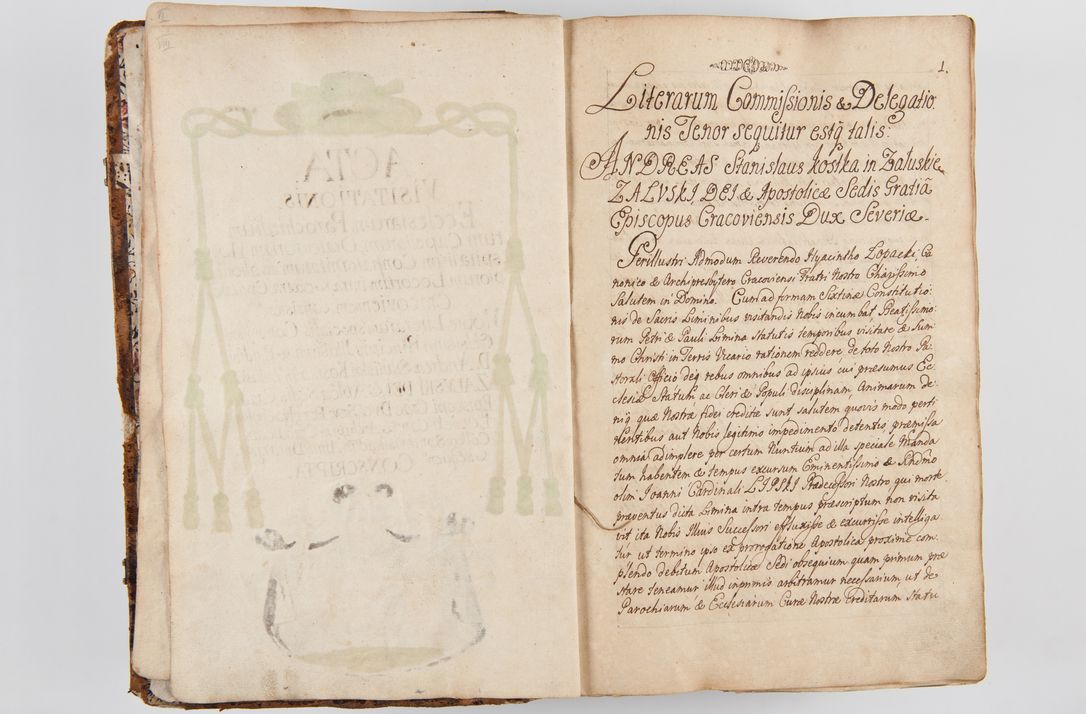 1.
Literarum Commissionis & Delegatio
nis Tenor sequitur estq̃ talis:
ANDREAS Stanislaus Kostka in Załuskie
ZALVSKI, DEI & Apostolicæ Sedis Gratiâ
Episcopus Cracoviensis Dux Severiæ.
Perillustri Admodum Reverendo Hyacintho Łopacki, Ca
nonico & Archipresbytero Cracoviensi Fratri Nostro Charissimo
Salutem in Domino. Cum ad formam Sixtinæ Constitutio:
nis de Sacris Liminibus visitandis Nobis incumbat Beatissimo:
rum Petri & Pauli Limina statutis temporibus visitare & Sum
mo Christi in Terris Vicario rationem reddere de toto Nostro Pa
storali Officio deq̃ rebus omnibus ad ipsius cui præsumus Ec
clesiæ Statum ac Cleri & Populi disciplinam, Animarum de:
niq̃ quæ Nostræ fidei creditæ sunt salutem quovis modo perti
nentibus aut Nobis legitimo impedimento detentis, præmissa
omnia adimplere per certum Nuntium ad illa speciale Manda
tum habentem & tempus excursum Eminentissimo &
olim Joanni Cardinali LIPSKI Prædecessori Nostro, qui morte
præventus dicta Limina intra tempus præscriptum non visita
vit ita Nobis Illius Successori effluxisse & excurrisse intelliga
tur ut termino ipso ex prorogatione Apostolica proxime com:
plendo debitum Apostolicæ Sedi obsequium quam primum præ
stare teneamur illud inprimis arbitramur necessarium, ut de
Parochiarum & Ecclesiarum Curæ Nostræ Creditarum Statu
ACTA
VISITATIONIS
Ecclesiarum Parochialium
CONSCRIPTA